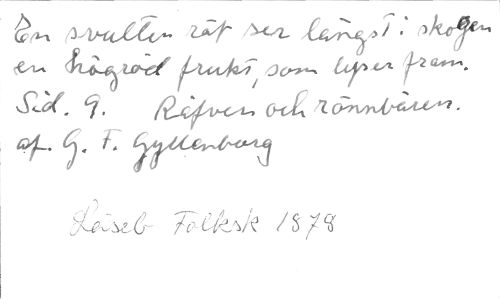 En svulten räf ser längst i skogen
en högröd frukt, som lyser fram.
Sid. 9. Räfven och rönnbären.
af. G. F. Gyllenborg
Läseb Folksk 1878